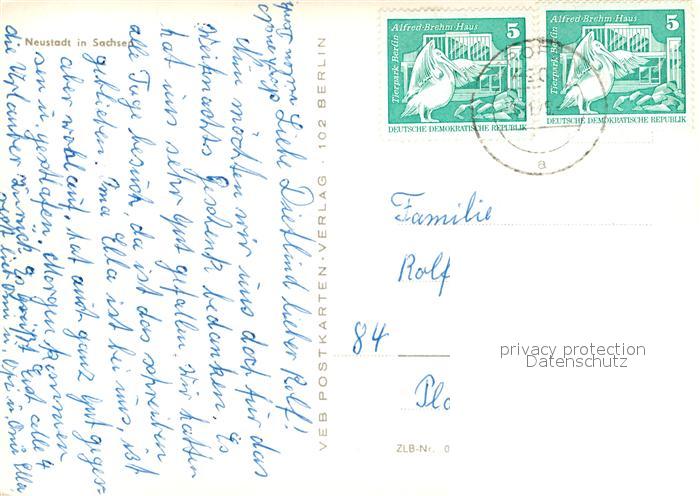 Neustadt in Sachsen
Liebe Dietlind lieber Rolf!
Nun möchten wir uns doch für das
Weihnachts Geschenk bedanken. Es
hat uns sehr gut gefallen. Wir hatten
alle Tage besuch, da ist das schreiben
geblieben. Oma Ella ist bei uns, ist
aber wohlauf, hat auch ganz gut geges-
sen u. geschlafen. Morgen kommen
die Urlauber zurück. Es grüßt Euch alle 4
recht lieb Oma u. Opa u. Oma Ella
VEB POSTKARTEN-VERLAG · 102 BERLIN
Alfred-Brehm-Haus 5
Tierpark Berlin
DEUTSCHE DEMOKRATISCHE REPUBLIK
Alfred-Brehm-Haus 5
Tierpark Berlin
DEUTSCHE DEMOKRATISCHE REPUBLIK
a
Familie
Rolf
84
privacy protection
Datenschutz
Plo
ZLB-Nr. 0